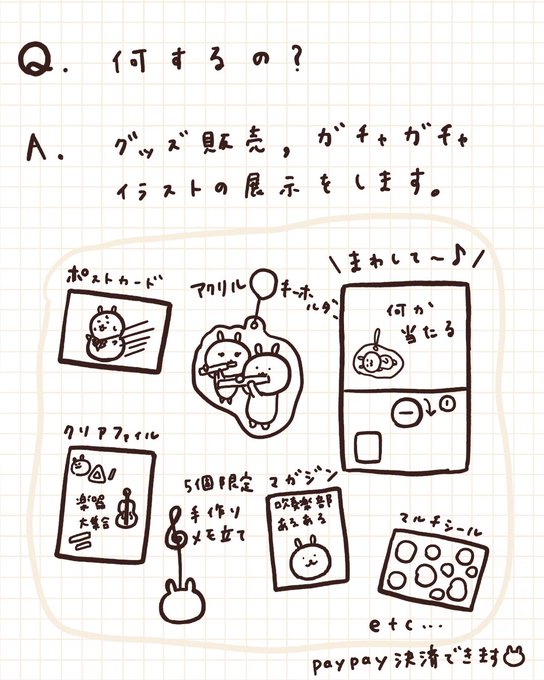 Q. 何するの?
A. グッズ販売,ガチャガチャ
イラストの展示をします。
ポストカード
アクリル
キーホルダー
\まわして〜♪/
何が
当たる
クリアファイル
楽器
大集合
5個限定
手作り
メモ立て
マガジン
吹奏楽部
あるある
マルチシール
etc...
paypay決済できます